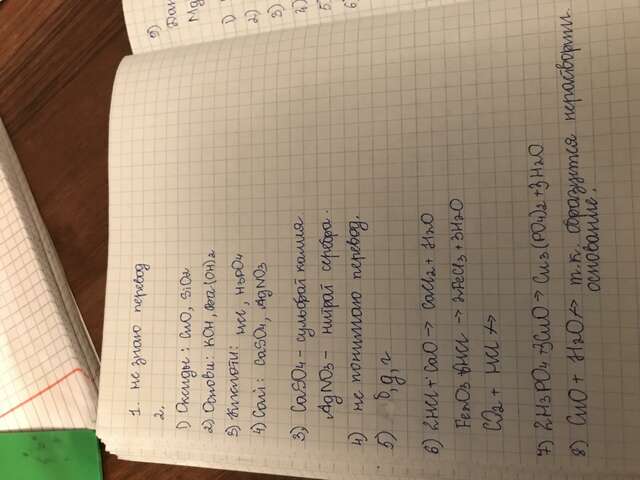 1. не знаю перевод
2.
1) Оксиды: CuO, SiO2
2) Основи: KOH, Ba(OH)2
3) Кислоти: HCl, H3PO4
4) Солі: CaSO4, AgNO3
3) CaSO4 - сульфат калия
AgNO3 - нитрат серебра.
4) не понимаю перевод.
5) б, д, г
6) 2HCl + CaO → CaCl2 + H2O
Fe2O3 + 6HCl → 2FeCl3 + 3H2O
CO2 + HCl ↛
7) 2H3PO4 + 3CuO → Cu3(PO4)2 + 3H2O
8) CuO + H2O ↛ т.к. образуется нерастворим.
основание.
9)
1)
2)
3)
4)
5
6